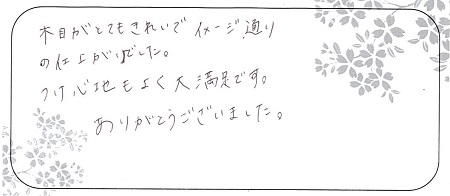 木目がとてもきれいでイメージ通り
の仕上がりでした。
つけ心地もよく大満足です。
ありがとうございました。